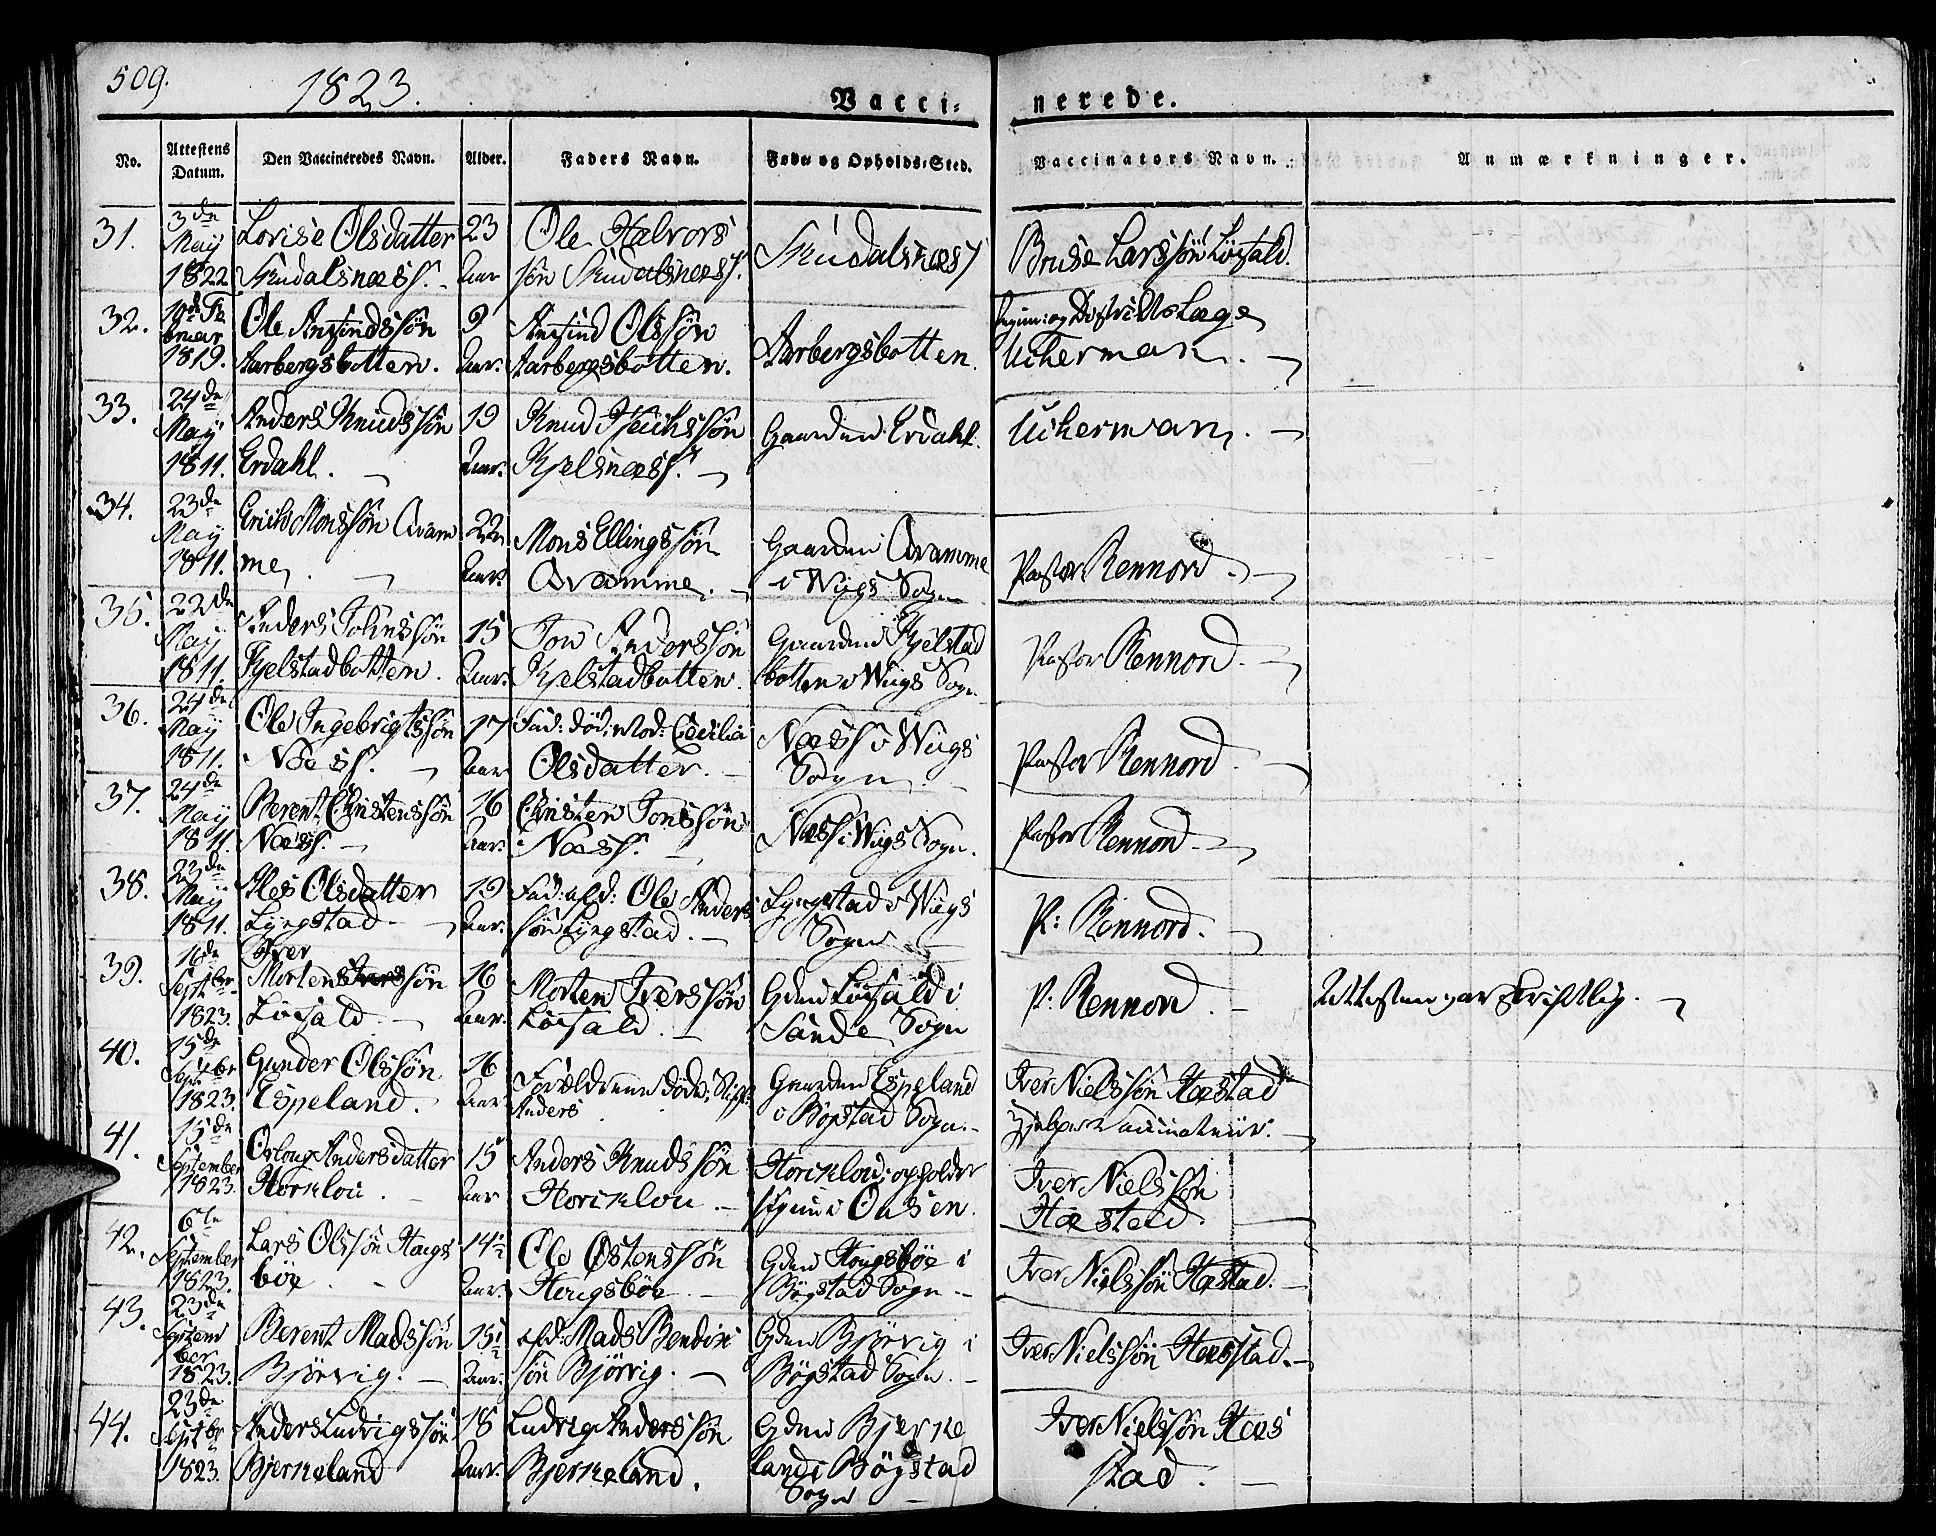 509.
1823.
Vacci-
nerede.
No.
Attestens
Datum.
Den Vaccineredes Navn.
Alder.
Faders Navn.
Føde og Opholds-Sted.
Vaccinators Navn.
Anmærkninger.
31.
3de
May
1822
Lovise Olsdatter
Skudalsnæss.
23
Aar
Ole Halvors
søn Skudalsnæss.
Skudalsnæss
Bruse Larssøn Løcfald.
32.
bruar
1819.
Ole Ansfindssøn
Aarbergsbotten.
9
Aar.
Ansfind Olssøn
Aarbergsbotten.
Aarbergsbotten.
Regim: og Districts Læge
Uchermann.
33.
24de
May
1811.
Anders Knudssøn
Erdahl.
19
Aar.
Knud
Kjelsnæss.
Gaarden Erdahl.
Uchermann.
34.
23de
May
1811.
Erich Monssøn Qvam
me
22
Aar.
Mons Ellingssøn
Qvamme.
Gaarden Qvamme
i Wiigs Sogn
Pastor Rennord.
35.
22de
May
1811.
Anders Johnssøn
Kjelstadbotten.
15
Aar.
Jon Anderssøn
Kjelstadbotten.
Gaarden Kjelstad
botten i Wiigs Sogn
Pastor Rennord.
36.
24de
May
1811.
Ole Ingebrigtssøn
Næss.
17
Aar
Fad: død: Mod: Cecilia
Olsdatter.
Næss i Wiigs
Sogn
Pastor Rennord.
37.
24de
May
1811.
Berent Christenssøn
Næss.
16
Aar.
Christen Jonssøn
Næss.
Næss i Wiigs Sogn.
Pastor Rennord.
38.
23de
May
1811.
Ales Olsdatter
Lyngstad.
19
Aar.
Fad: afd: Ole Anders
søn Lyngstad.
Lyngstad i Wiigs
Sogn
P: Rennord.
39.
16de
Septbr
1823.
Iver
Mortens Iverssøn
Løcfald.
16
Aar.
Morten Iverssøn
Løcfald.
Gden Løcfald i
Sande Sogn
P: Rennord.
Attesten var skriftlig.
40.
15de
Septbr
1823.
Gunder Olssøn
Espeland.
16
Aar
Forældrene døde; Stiff:
Anders
Gaarden Espeland
i Bøgstad Sogn.
Iver Nielssøn Hæstad
Hjelpe Vaccinateur.
41.
15de
September
1823.
Orloug Andersdatter
Horsklou
15
Aar
Anders Knudssøn
Horsklou.
Horsklou; opholder
sig nu i Ousen.
Iver Nielssøn
Hæstad.
42.
6te
September
1823.
Lars Olssøn Haugs
bøe
14½
Aar.
Ole Østenssøn
Hougsbøe.
Gden Hougsbøe i
Bøgstad Sogn.
Iver Nielssøn Hæstad.
43.
23de
Septem
ber
1823.
Berent Madssøn
Bjørvig.
15½
Aar.
afd: Mads Bendix
søn Bjørvig.
Gden Bjørvig i
Bøgstad Sogn.
Iver Nielssøn Hæsstad.
44.
23de
Septbr
1823.
Anders Ludvigssøn
Bjerkeland
18
Aar.
Ludvig Anderssøn
Bjerkeland.
Gden Bjerke
land i Bøgstad
Sogn
Iver Nielssøn Hæs
stad.